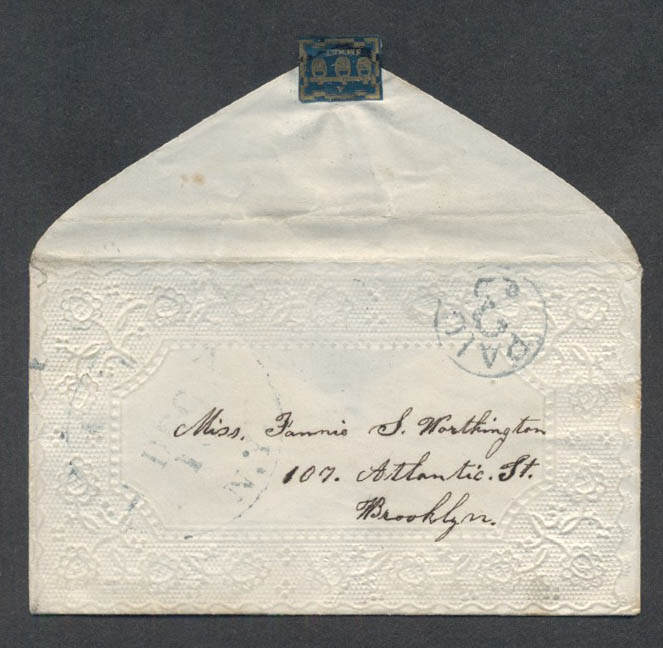 PAID
3
Miss. Fannie S. Worthington
107. Atlantic. St.
Brooklyn.
N.Y.